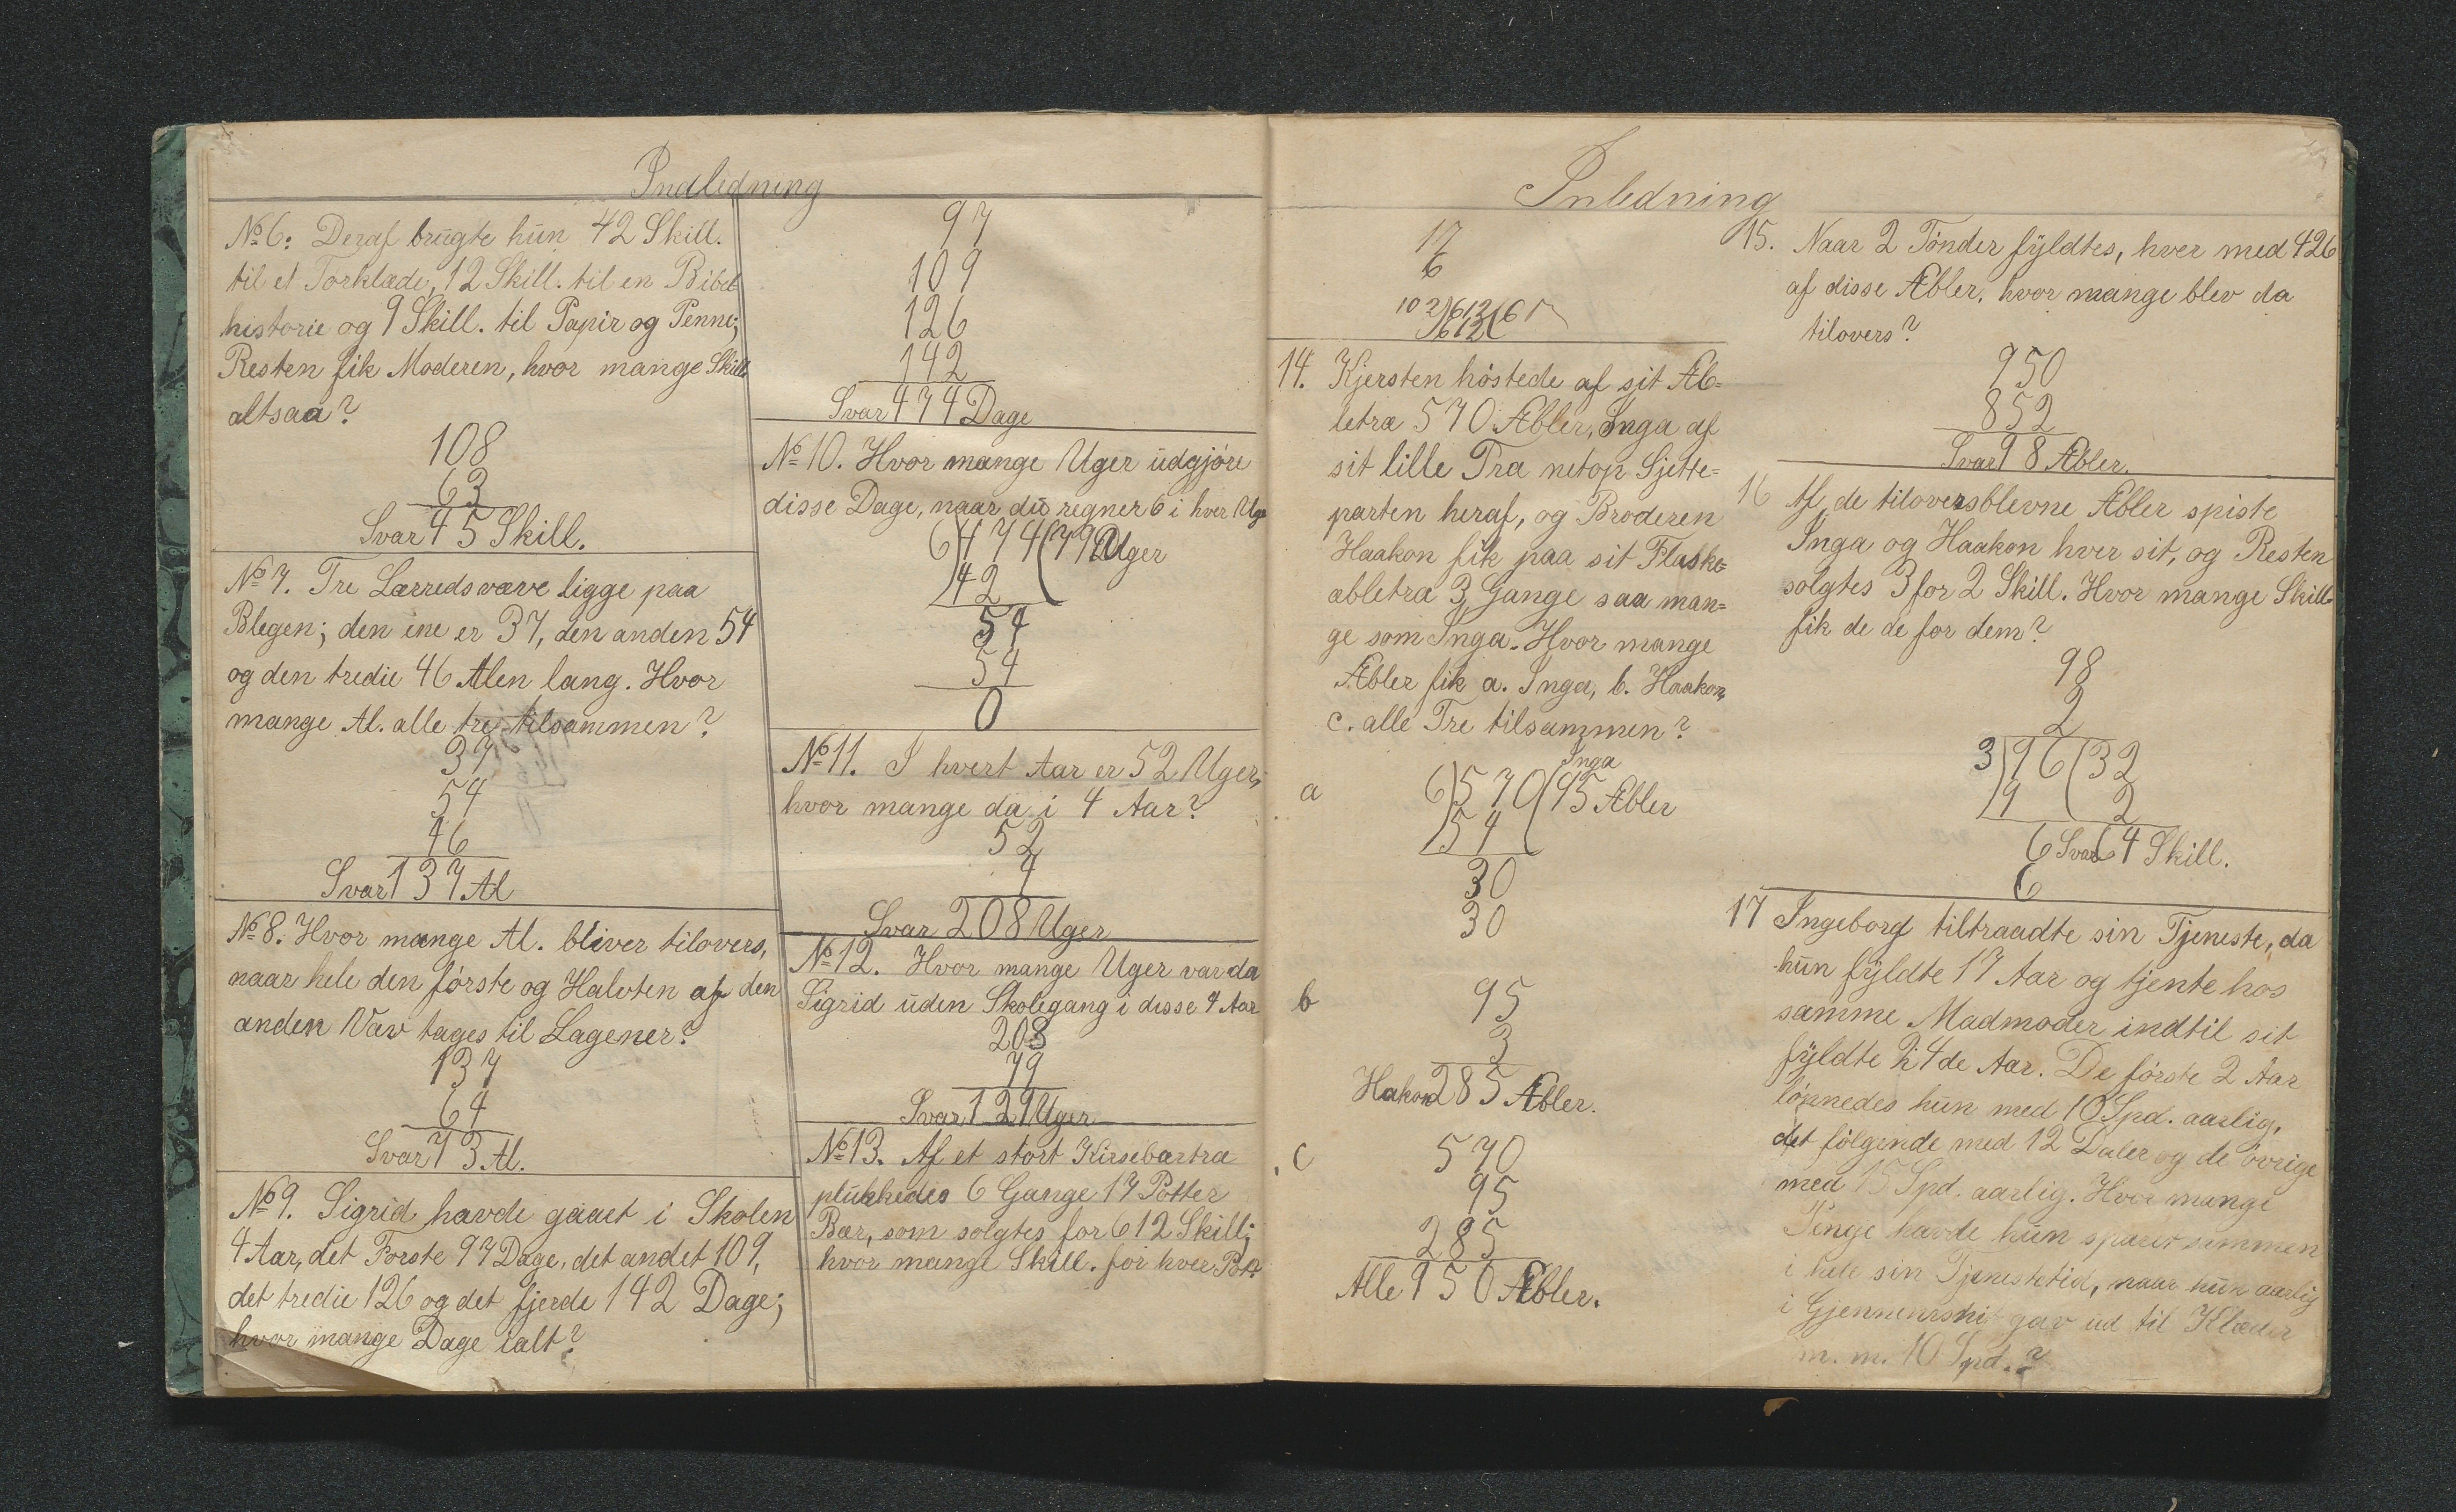 Indledning
No 6. Deraf brugte hun 42 Skill.
til et Torklæde, 12 Skill. til en Bibel
historie og 9 Skill. til Papir og Penne;
Resten fik Moderen, hvor mange Skill.
altsaa?
108
63
Svar 45 Skill.
No 7. Tre Lærredsvæve ligge paa
Blegen; den ene er 37, den anden 54
og den tredie 46 Alen lang. Hvor
mange Al. alle tre tilsammen?
37
54
46
Svar 137 Al
No 8. Hvor mange Al. bliver tilovers,
naar hele den første og Halvten af den
anden Væv tages til Lagener?
137
64
Svar 73 Al.
No 9. Sigrid havde gaaet i Skolen
4 Aar, det Forste 97 Dage, det andet 109,
det tredie 126 og det fjerde 142 Dage;
hvor mange Dage ialt?
97
109
126
142
Svar 474 Dage
No 10. Hvor mange Uger udgjøre
disse Dage, naar du regner 6 i hver Uge
6)474(79 Uger
42
54
54
0
No 11. I hvert Aar er 52 Uger,
hvor mange da i 4 Aar?
52
4
Svar 208 Uger
No 12. Hvor mange Uger var da
Sigrid uden Skolegang i disse 4 Aar
208
79
Svar 129 Uger
No 13. Af et stort Kirsebærtræ
plukkedes 6 Gange 17 Potter
Bær, som solgtes for 612 Skill;
hvor mange Skill. for hver Pot?
Inledning
17
6
102)612(6
612
14. Kjersten høstede af sit Æb=
letræ 570 Æbler, Inga af
sit lille Træ netop Sjette=
parten heraf, og Broderen
Haakon fik paa sit Flaske=
æbletræ 3 Gange saa man=
ge som Inga. Hvor mange
Æbler fik a. Inga, b. Haakon,
c. alle Tre tilsammen?
Inga
a 6)570(95 Æbler
54
30
30
b 95
3
Hakon 285 Æbler.
c 570
95
285
Alle 950 Æbler.
15. Naar 2 Tønder fyldtes, hver med 426
af disse Æbler, hvor mange blev da
tilovers?
950
852
Svar 98 Æbler.
16 Af de tiloversblevne Æbler spiste
Inga og Haakon hver sit, og Resten
solgtes 3 for 2 Skill. Hvor mange Skill.
fik de de for dem?
98
2
3)96(32
9 2
6 Svar 64 Skill.
6
17 Ingeborg tiltraadte sin Tjeneste, da
hun fyldte 17 Aar og tjente hos
samme Madmoder indtil sit
fyldte 24de Aar. De første 2 Aar
lønnedes hun med 10 Spd. aarlig,
det følgende med 12 Daler og de øvrige
med 15 Spd. aarlig. Hvor mange
Penge havde hun sparet sammen
i hele sin Tjenestetid, naar hun aarlig
i Gjennemsnit gav ud til Klæder
m. m. 10 Spd.?